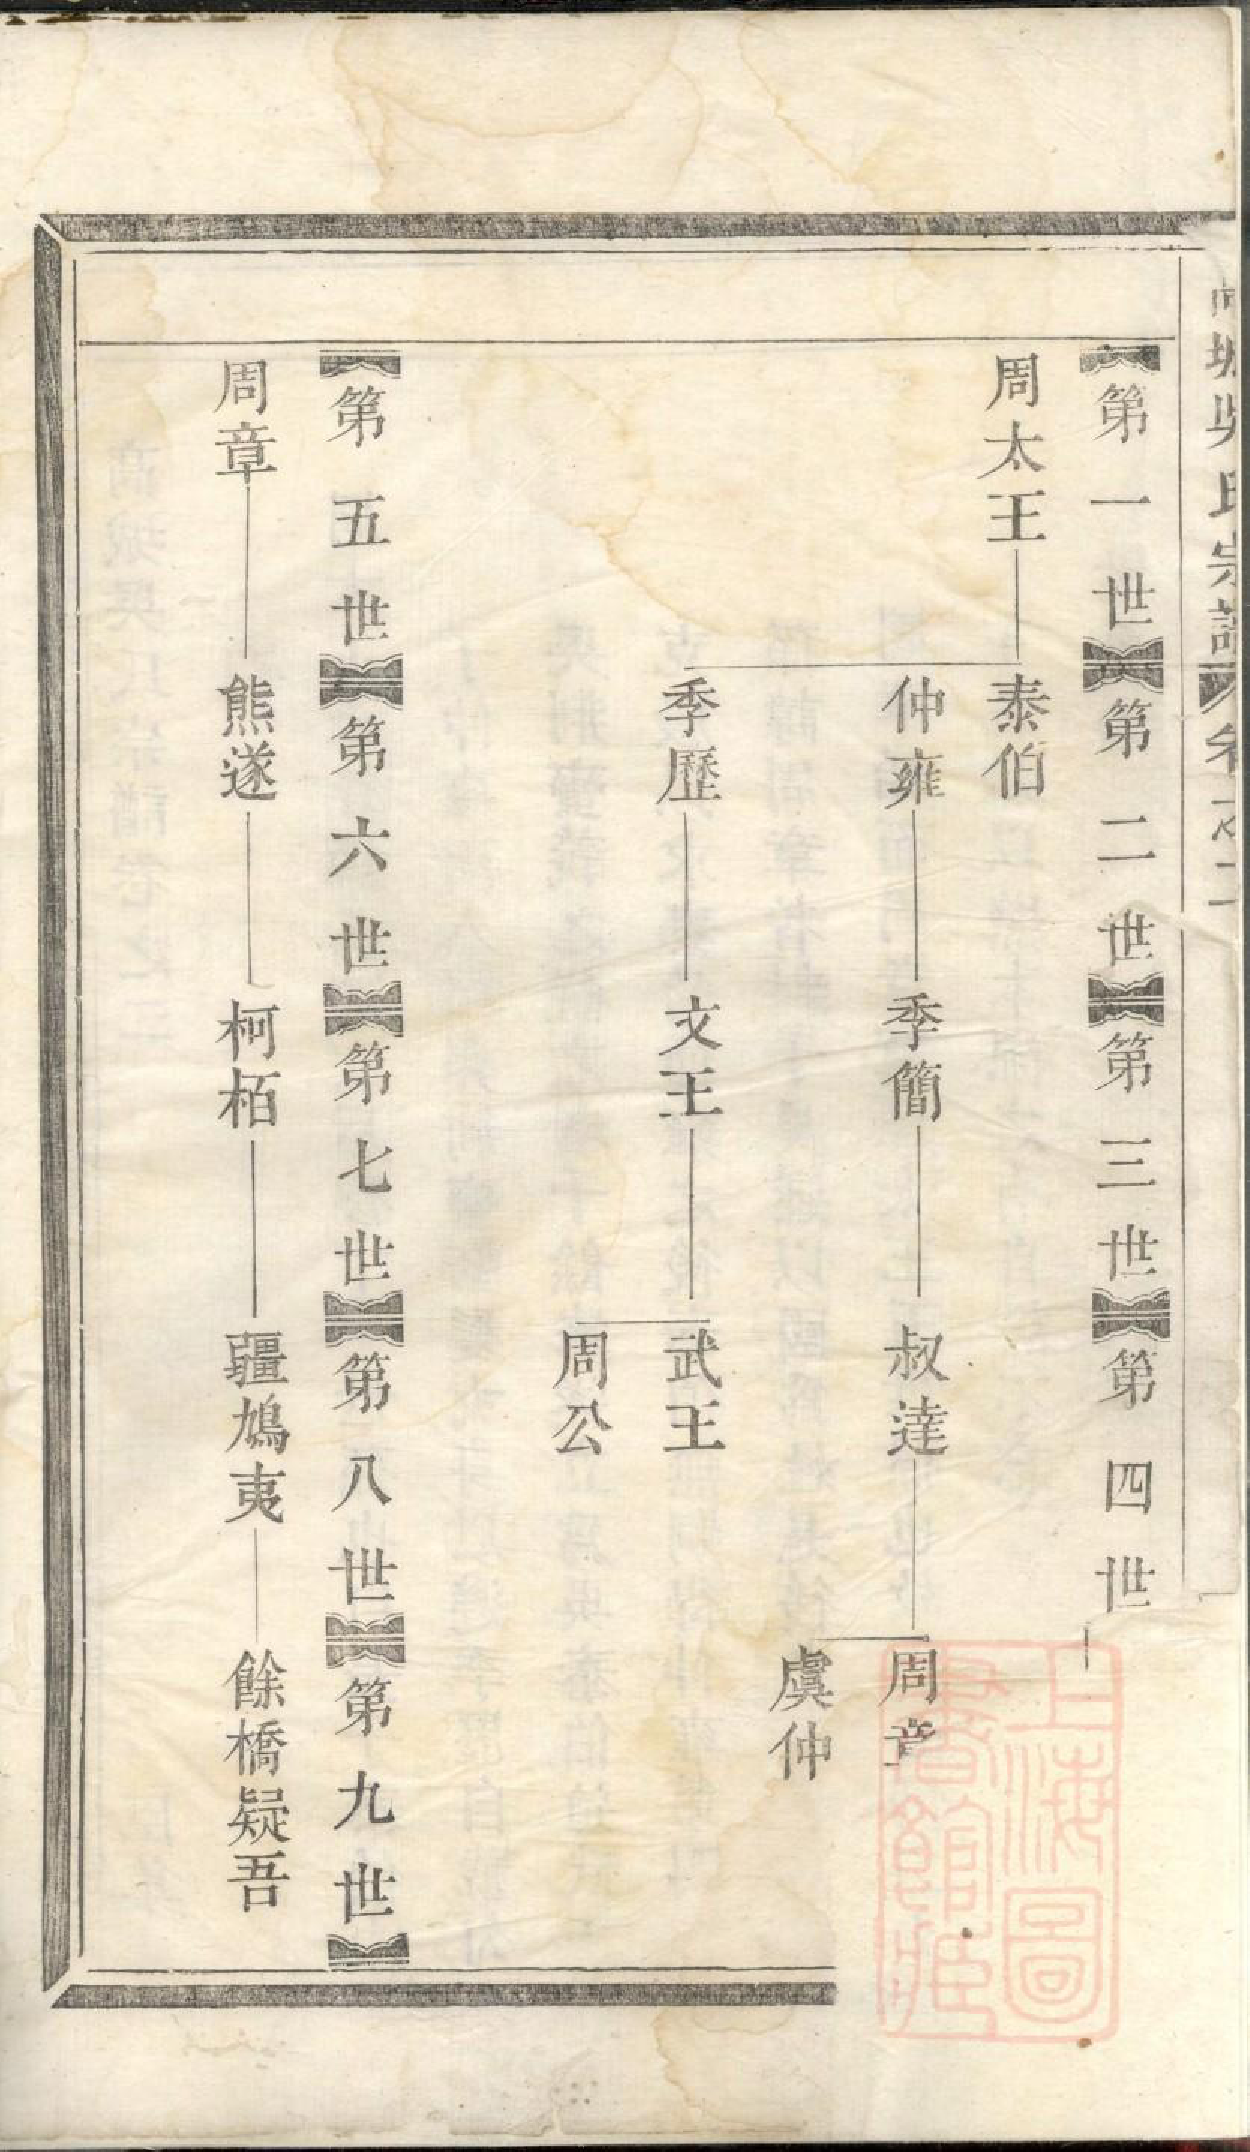 吳氏宗譜 卷之二
第一世 第二世 第三世 第四世
周太王 泰伯
仲雍 季簡 叔達 周章
虞仲
季歷 文王 武王
周公
第五世 第六世 第七世 第八世 第九世
周章 熊遂 柯栢 疆鳩夷 餘橋疑吾
上海圖書館藏